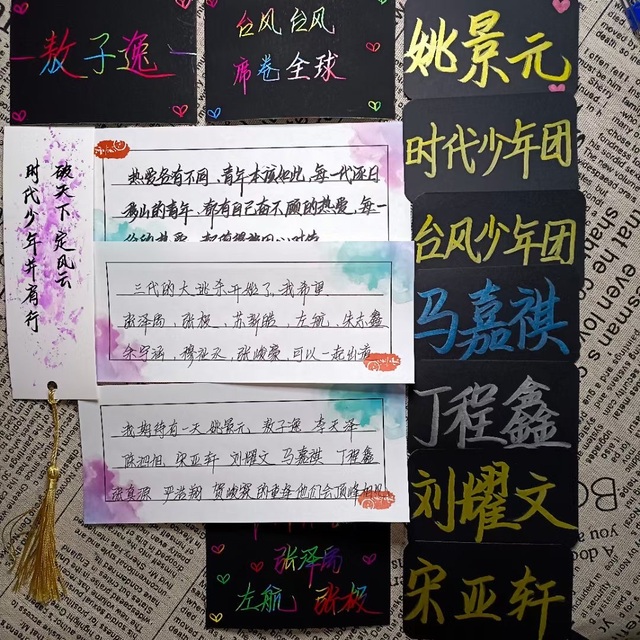 敖子逸
台风台风
席卷全球
姚景元
时代少年团
台风少年团
马嘉祺
丁程鑫
刘耀文
宋亚轩
破天下定风云
时代少年并肩行
热爱各有不同,青年本该如此,每一代逐日
愚山的青年,都有自己奋不顾的热爱,每一
三代的大逃杀开始了,我希望
张泽禹,张极,苏新皓,左航,朱志鑫
余宇涵,穆祉丞,张峻豪,可以一起出道
我期待有一天姚景元,敖子逸 李天泽
陈玺达 宋亚轩 刘耀文 马嘉祺 丁程鑫
张真源 严浩翔 贺峻霖 的重逢他们会顶峰相见
张泽禹
左航 张极